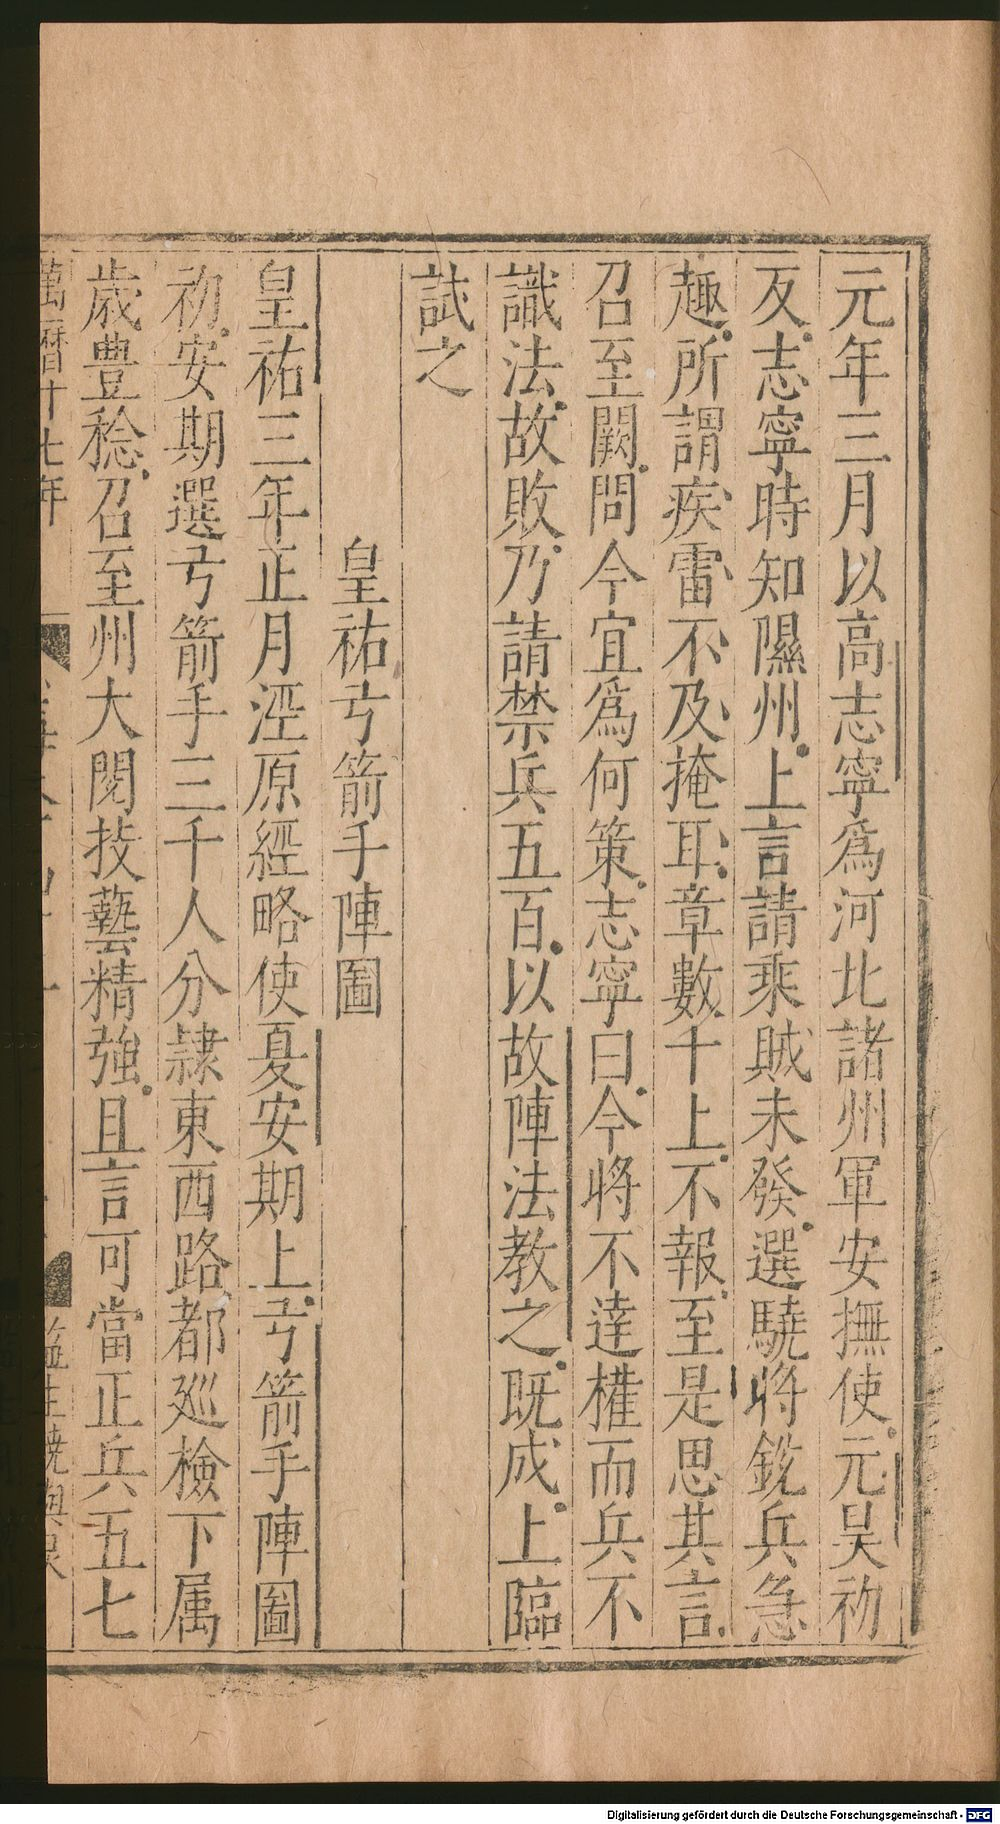 元年三月以高志寧爲河北諸州軍安撫使元昊初
反志寧時知隰州上言請乘賊未發選驍將銳兵急
趣所謂疾雷不及掩耳章數十上不報至是思其言
召至闕問今宜爲何策志寧曰今將不達權而兵不
識法故敗乃請禁兵五百以故陣法教之既成上臨
試之
皇祐弓箭手陣圖
皇祐三年正月涇原經略使夏安期上弓箭手陣圖
初安期選弓箭手三千人分隷東西路都廵檢下属
歲豊稔召至州大閱技藝精強且言可當正兵五七
萬曆十七年
Digitalisierung gefördert durch die Deutsche Forschungsgemeinschaft - DFG